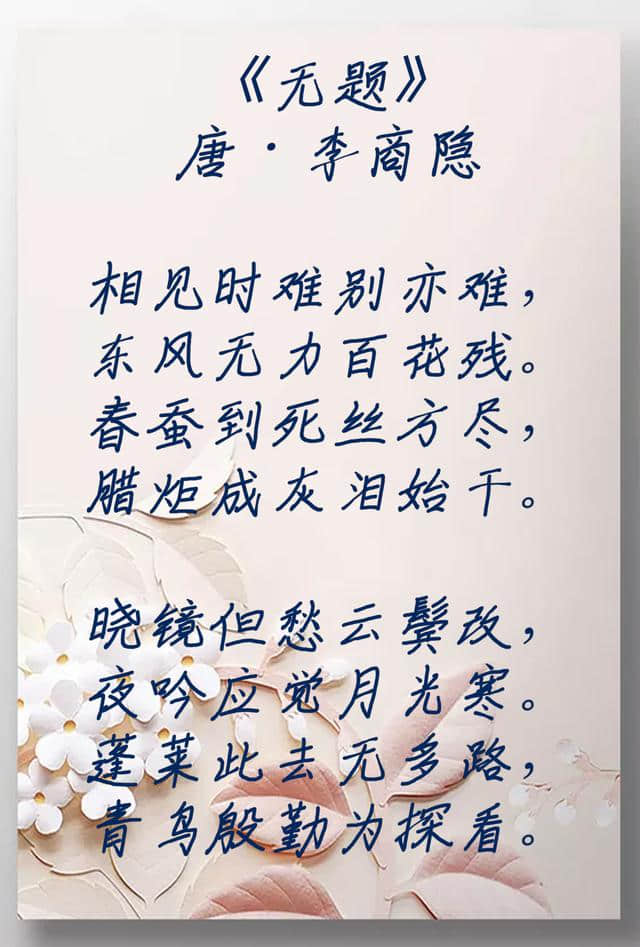 《无题》
唐·李商隐
相见时难别亦难，
东风无力百花残。
春蚕到死丝方尽，
腊炬成灰泪始干。
晓镜但愁云鬓改，
夜吟应觉月光寒。
蓬莱此去无多路，
青鸟殷勤为探看。